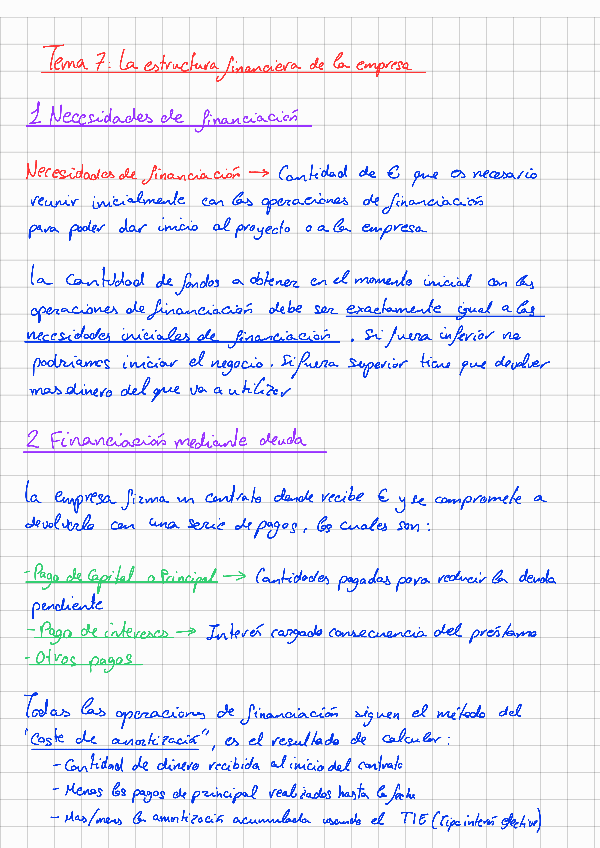 Tema 7: La estructura financiera de la empresa
1 Necesidades de financiación
Necesidades de financiación → Cantidad de € que es necesario
reunir inicialmente con las operaciones de financiación
para poder dar inicio al proyecto o a la empresa
La cantidad de fondos a obtener en el momento inicial con las
operaciones de financiación debe ser exactamente igual a las
necesidades iniciales de financiación. Si fuera inferior no
podríamos iniciar el negocio. Si fuera superior tiene que devolver
mas dinero del que va a utilizar
2 Financiación mediante deuda
La empresa firma un contrato donde recibe € y se compromete a
devolverlo con una serie de pagos, los cuales son:
- Pago de Capital o Principal → Cantidades pagadas para reducir la deuda
pendiente
- Pago de intereses → Interés cargado consecuencia del préstamo
- Otros pagos
Todas las operaciones de financiación siguen el método del
"Coste de amortización", es el resultado de calcular:
- Cantidad de dinero recibida al inicio del contrato
- Menos los pagos de principal realizados hasta la fecha
- Mas/menos la amortización acumulada usando el TIE (Tipo interés efectivo)